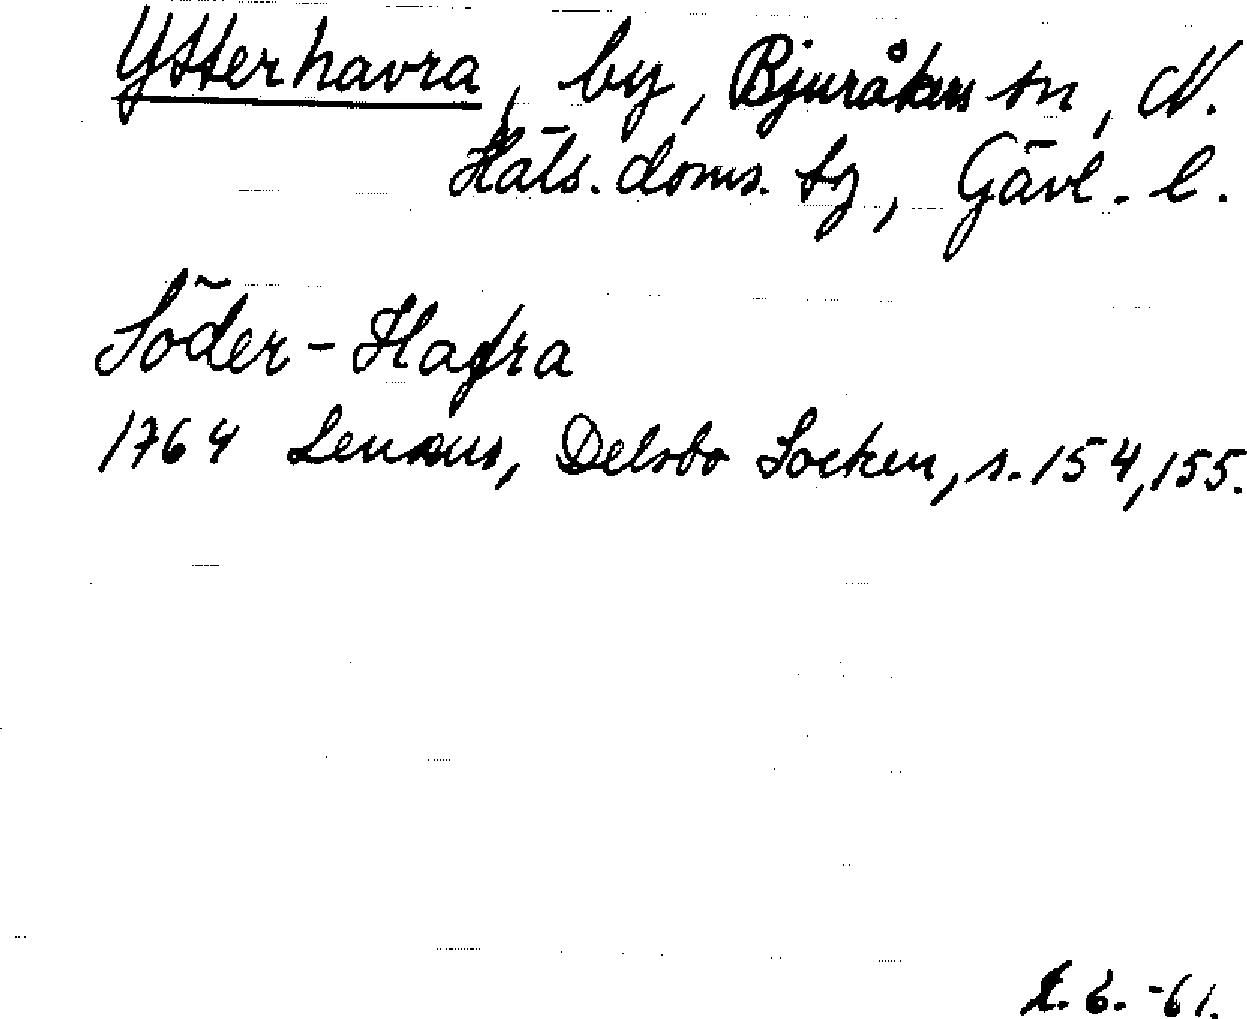 Ytterhavra, by, Bjuråkers sn, N.
Häls. doms. tg, Gävl. l.
Söder-Hafra
1764 Lenæus, Delsbo Socken, s. 154, 155.
6. -61.